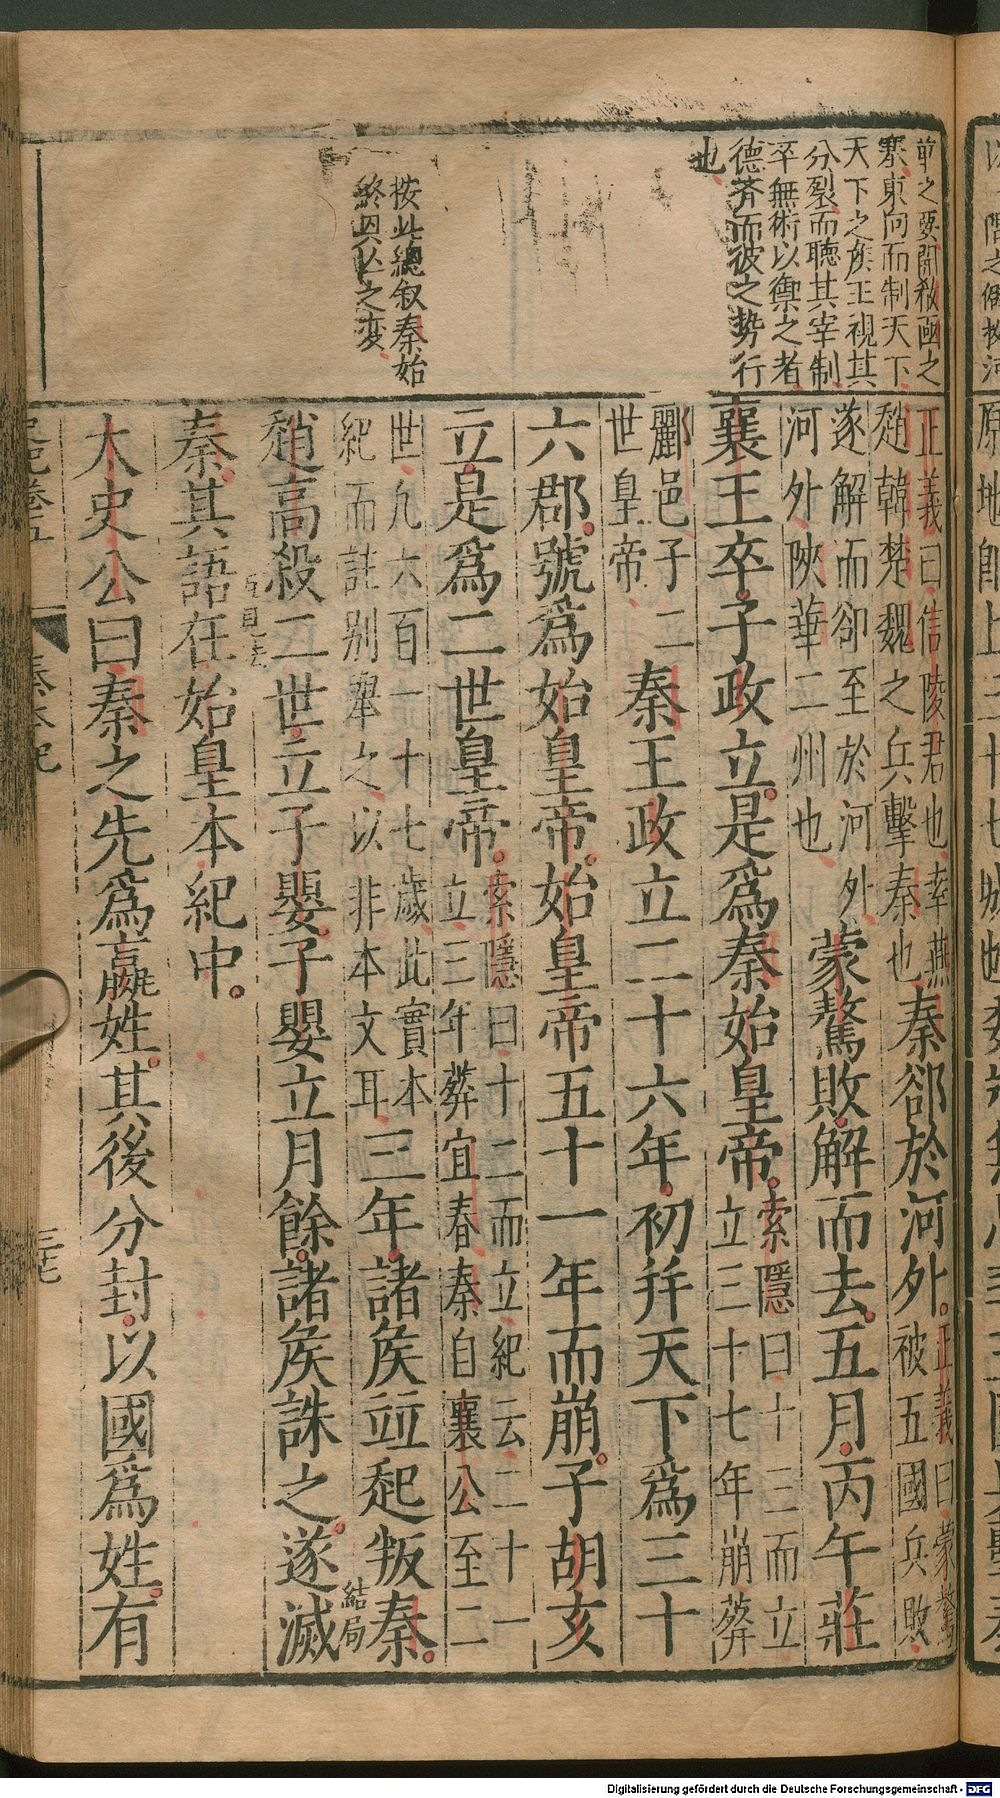 前之要開殽函之
塞東向而制天下
天下之侯王視其
分裂而聽其宰制
卒無術以禦之者
德薄而彼之势行
也
按此總叙秦始
終興亾之変
正義曰信陵君也率燕
趙韓楚魏之兵擊秦也
秦郤於河外
正義曰蒙驁
被五國兵敗
遂解而卻至於河外
河外陜華二州也
蒙驁敗解而去五月丙午莊
襄王卒子政立是爲秦始皇帝
索隱曰十三而立
立三十七年崩葬
酈邑子立二
世皇帝
秦王政立二十六年初幷天下爲三十
六郡號爲始皇帝始皇帝五十一年而崩子胡亥
立是爲二世皇帝
索隱曰十二而立紀云二十一
立三年葬宜春秦自襄公至二
世凡六百一十七歲此實本
紀而註别舉之以非本文耳
三年諸侯竝起叛秦
結局
趙高殺二世立子嬰子嬰立月餘諸侯誅之遂滅
秦其語在始皇本紀中
太史公曰秦之先爲嬴姓其後分封以國爲姓有
史記卷五
秦本紀
三七
Digitalisierung gefördert durch die Deutsche Forschungsgemeinschaft - DFG